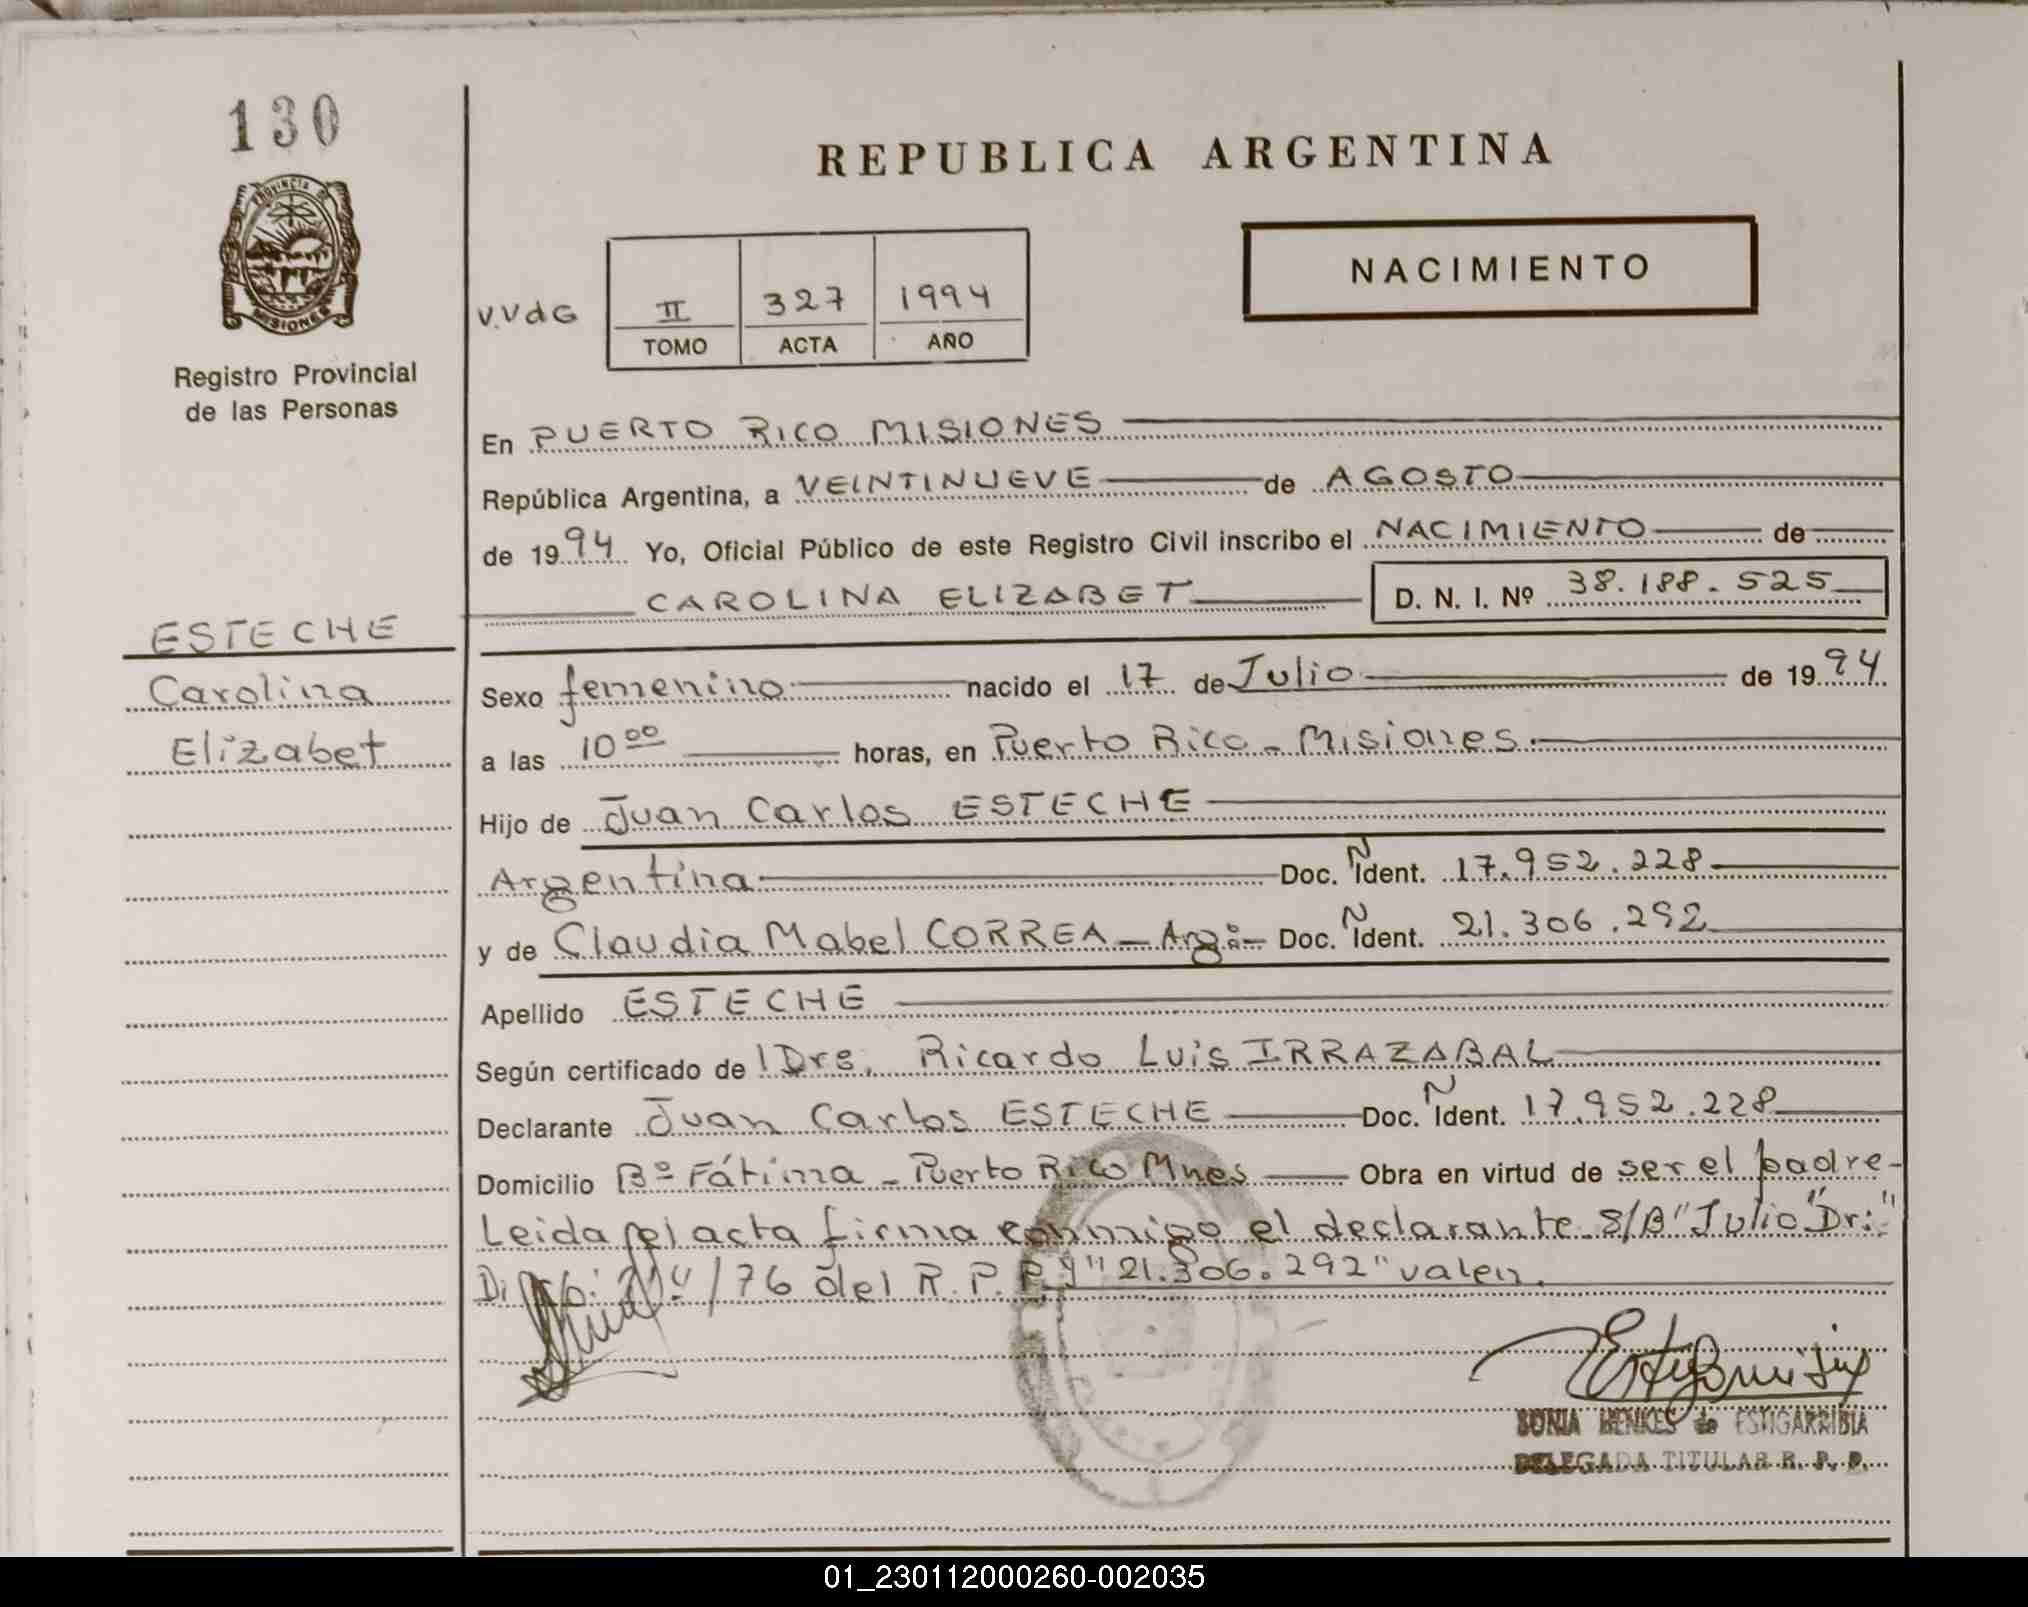 130
PROVINCIA DE
MISIONES
Registro Provincial
de las Personas
REPUBLICA ARGENTINA
NACIMIENTO
V.VdG
II 327 1994
TOMO ACTA AÑO
En PUERTO RICO MISIONES
República Argentina, a VEINTINUEVE de AGOSTO
de 1994 Yo, Oficial Público de este Registro Civil inscribo el NACIMIENTO de
CAROLINA ELIZABET D. N. I. Nº 38.188.525
ESTECHE
Carolina
Elizabet
Sexo femenino nacido el 17 de Julio de 1994
a las 10 00 horas, en Puerto Rico - Misiones.
Hijo de Juan Carlos ESTECHE
Argentina Doc. Ñ Ident. 17.952.228
y de Claudia Mabel CORREA - Arg: Doc. Ñ Ident. 21.306.292
Apellido ESTECHE
Según certificado de Ricardo Luis IRRAZABAL
Declarante Juan Carlos ESTECHE Doc. Ñ Ident. 17.952.228
Domicilio Bº Fátima - Puerto Rico Mnes Obra en virtud de ser el padre-
Leida el acta firma conmigo el declarante. S/B "Julio" "Dr:"
/76 del R.P.P. y "21.306.292" valen.
SONIA HENKES de ESTIGARRIBIA
DELEGADA TITULAR R. P. P.
01_230112000260-002035